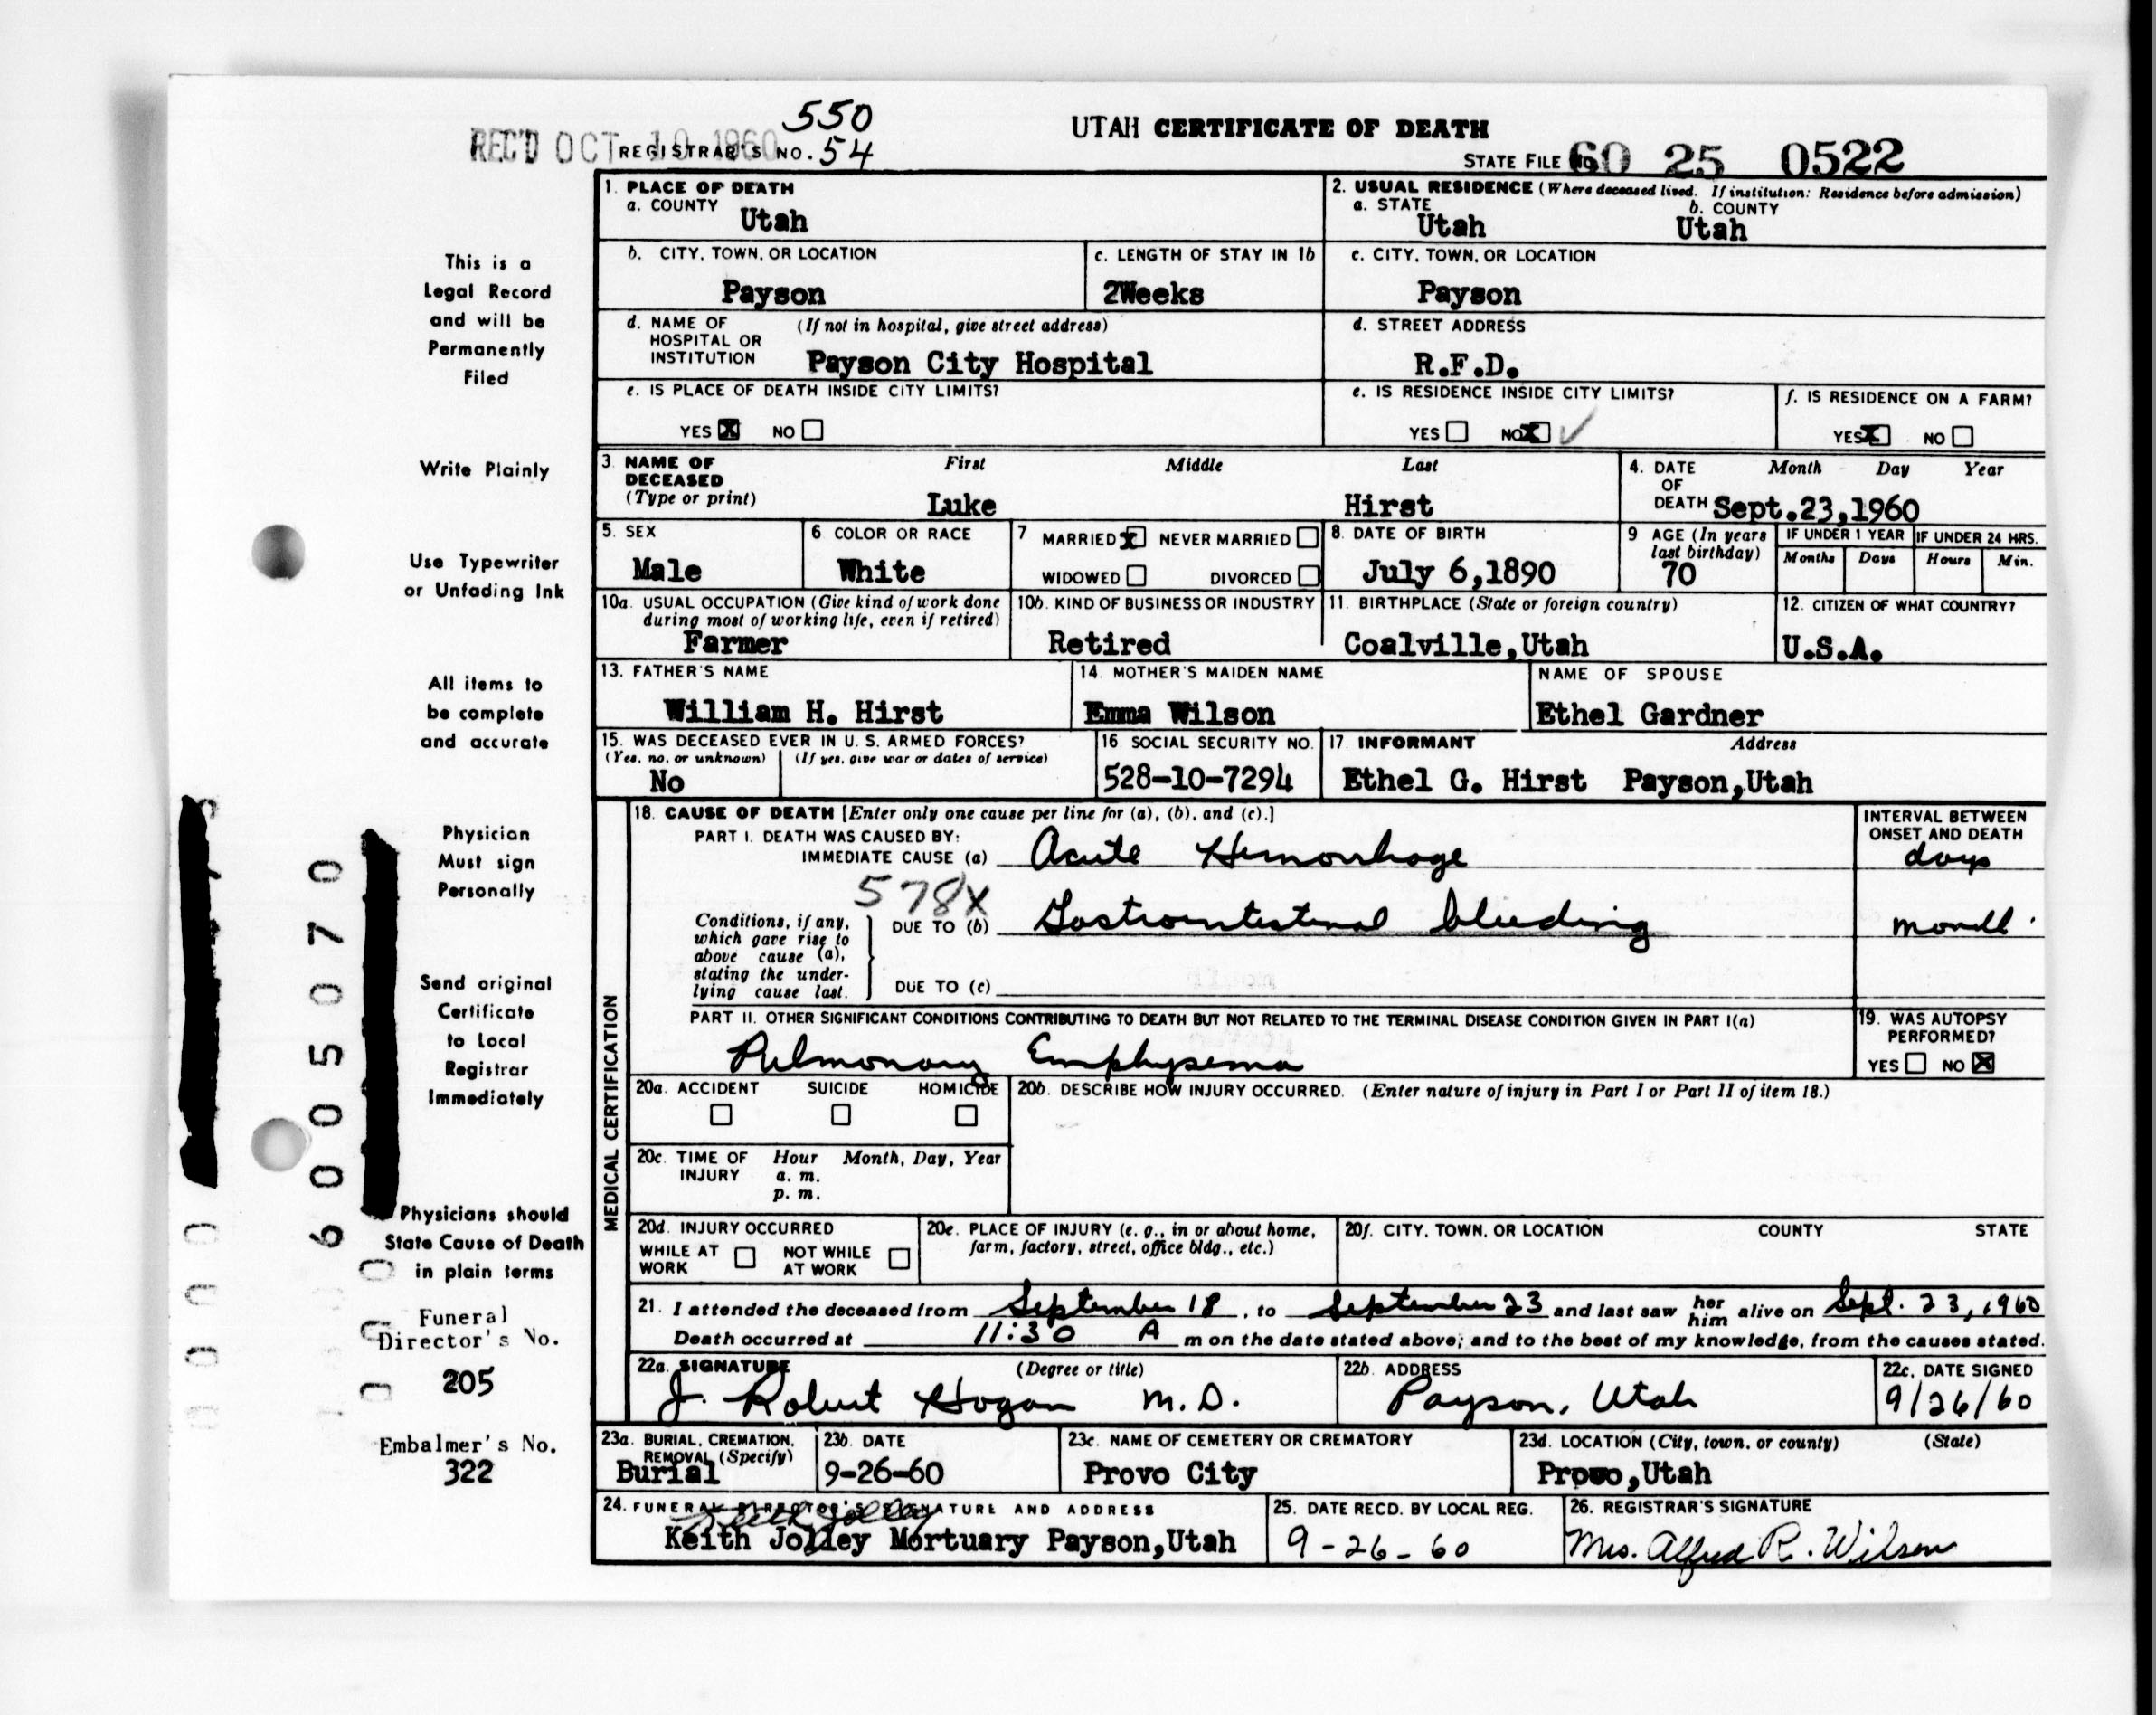 550
REC'D OCT 10 1960 REGISTRAR'S NO. 54
UTAH CERTIFICATE OF DEATH
STATE FILE NO. 60 25 0522
1. PLACE OF DEATH
a. COUNTY
Utah
2. USUAL RESIDENCE (Where deceased lived. If institution: Residence before admission)
a. STATE b. COUNTY
Utah Utah
b. CITY, TOWN, OR LOCATION
Payson
c. LENGTH OF STAY IN 1b
2Weeks
c. CITY, TOWN, OR LOCATION
Payson
d. NAME OF (If not in hospital, give street address)
HOSPITAL OR
INSTITUTION Payson City Hospital
d. STREET ADDRESS
R.F.D.
e. IS PLACE OF DEATH INSIDE CITY LIMITS?
YES X NO
e. IS RESIDENCE INSIDE CITY LIMITS?
YES NO X ✓
f. IS RESIDENCE ON A FARM?
YES X NO
3. NAME OF First Middle Last
DECEASED
(Type or print) Luke Hirst
4. DATE Month Day Year
OF
DEATH Sept.23,1960
5. SEX
Male
6 COLOR OR RACE
White
7 MARRIED X NEVER MARRIED
WIDOWED DIVORCED
8. DATE OF BIRTH
July 6,1890
9 AGE (In years
last birthday)
70
IF UNDER 1 YEAR IF UNDER 24 HRS.
Months Days Hours Min.
10a. USUAL OCCUPATION (Give kind of work done
during most of working life, even if retired)
Farmer
10b. KIND OF BUSINESS OR INDUSTRY
Retired
11. BIRTHPLACE (State or foreign country)
Coalville,Utah
12. CITIZEN OF WHAT COUNTRY?
U.S.A.
13. FATHER'S NAME
William H. Hirst
14. MOTHER'S MAIDEN NAME
Emma Wilson
NAME OF SPOUSE
Ethel Gardner
15. WAS DECEASED EVER IN U. S. ARMED FORCES?
(Yes, no. or unknown) (If yes, give war or dates of service)
No
16. SOCIAL SECURITY NO.
528-10-7294
17. INFORMANT Address
Ethel G. Hirst Payson,Utah
MEDICAL CERTIFICATION
18. CAUSE OF DEATH [Enter only one cause per line for (a), (b), and (c).]
INTERVAL BETWEEN
ONSET AND DEATH
PART I. DEATH WAS CAUSED BY:
IMMEDIATE CAUSE (a) Acute Hemorrhage days
578X
Conditions, if any,
which gave rise to
above cause (a),
stating the under-
lying cause last.
DUE TO (b) Gastrointestinal bleeding month
DUE TO (c)
PART II. OTHER SIGNIFICANT CONDITIONS CONTRIBUTING TO DEATH BUT NOT RELATED TO THE TERMINAL DISEASE CONDITION GIVEN IN PART I(a)
Pulmonary Emphysema
19. WAS AUTOPSY
PERFORMED?
YES NO X
20a. ACCIDENT SUICIDE HOMICIDE
20b. DESCRIBE HOW INJURY OCCURRED. (Enter nature of injury in Part I or Part II of item 18.)
20c. TIME OF Hour Month, Day, Year
INJURY a. m.
p. m.
20d. INJURY OCCURRED
WHILE AT NOT WHILE
WORK AT WORK
20e. PLACE OF INJURY (e. g., in or about home,
farm, factory, street, office bldg., etc.)
20f. CITY, TOWN, OR LOCATION COUNTY STATE
21. I attended the deceased from September 18, to September 23 and last saw her him alive on Sept. 23, 1960
Death occurred at 11:30 A m on the date stated above; and to the best of my knowledge, from the causes stated.
22a. SIGNATURE (Degree or title)
J. Robert Hogan M.D.
22b. ADDRESS
Payson, Utah
22c. DATE SIGNED
9/26/60
23a. BURIAL, CREMATION,
REMOVAL (Specify)
Burial
23b. DATE
9-26-60
23c. NAME OF CEMETERY OR CREMATORY
Provo City
23d. LOCATION (City, town, or county) (State)
Provo,Utah
24. FUNERAL DIRECTOR'S SIGNATURE AND ADDRESS
Keith Jolley
Keith Jolley Mortuary Payson,Utah
25. DATE RECD. BY LOCAL REG.
9-26-60
26. REGISTRAR'S SIGNATURE
Mrs. Alfred R. Wilson
This is a
Legal Record
and will be
Permanently
Filed
Write Plainly
Use Typewriter
or Unfading Ink
All items to
be complete
and accurate
Physician
Must sign
Personally
Send original
Certificate
to Local
Registrar
Immediately
Physicians should
State Cause of Death
in plain terms
Funeral
Director's No.
205
Embalmer's No.
322
6005070